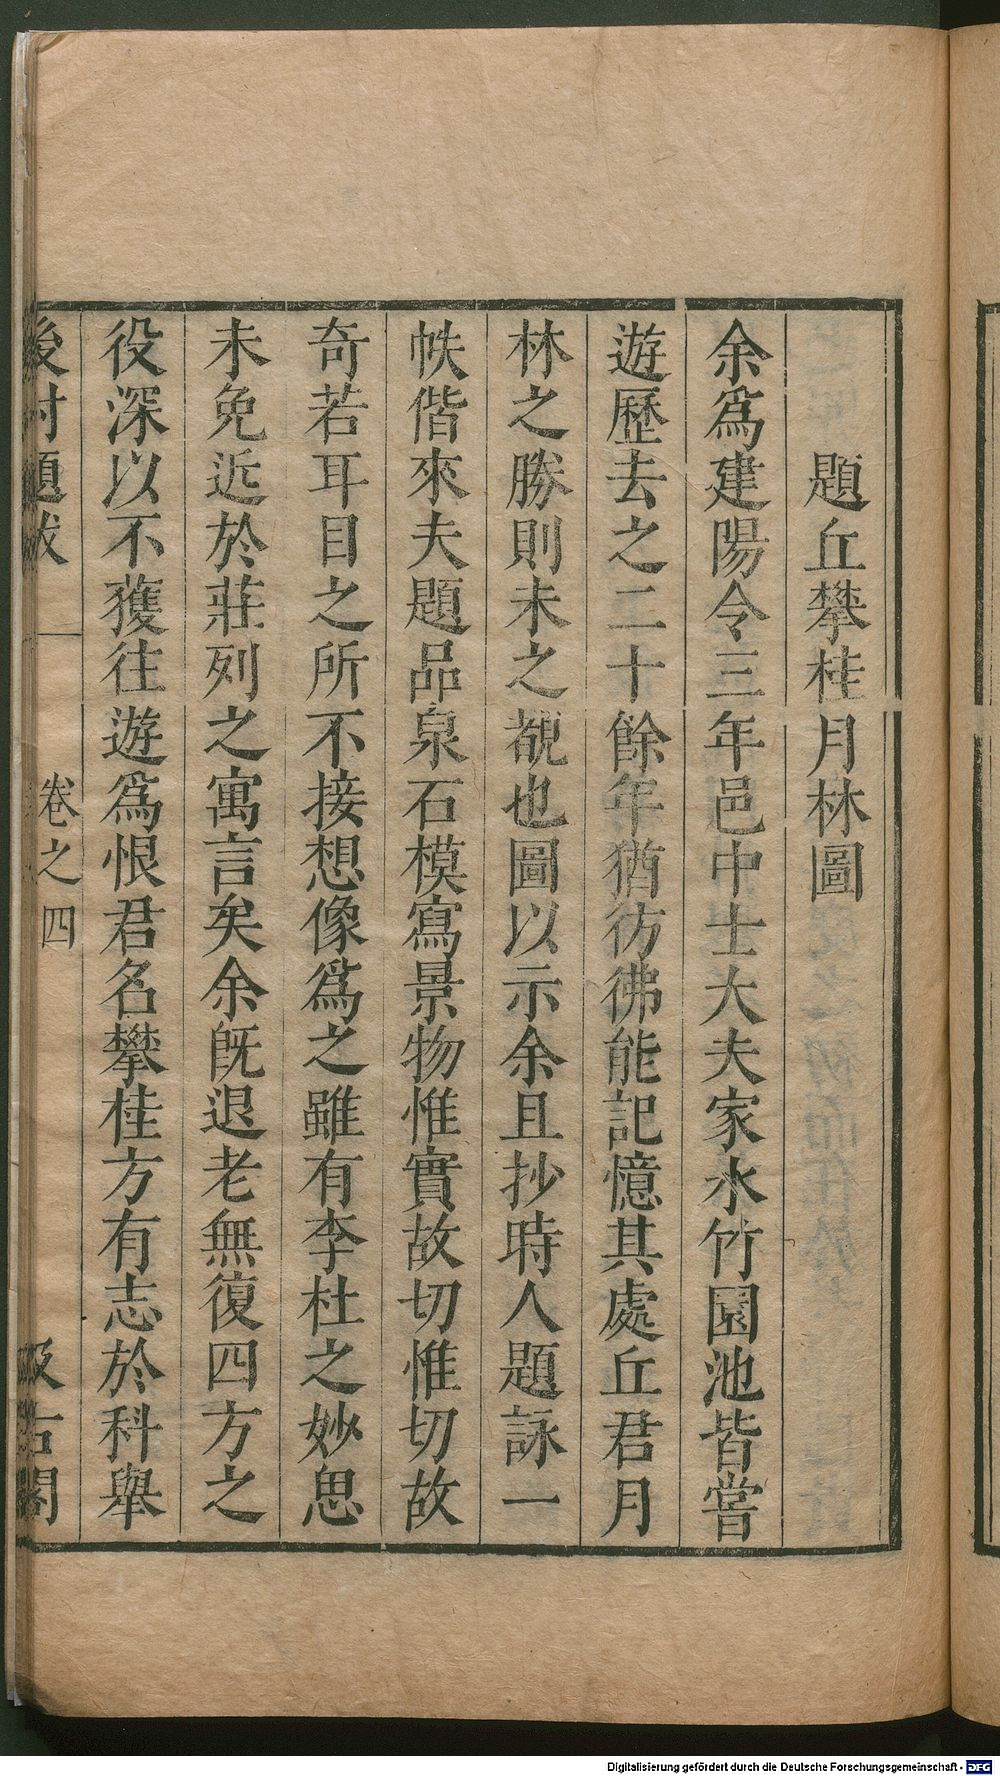 題丘攀桂月林圖
余爲建陽令三年邑中士大夫家水竹園池皆嘗
遊歷去之二十餘年猶彷彿能記憶其處丘君月
林之勝則未之覩也圖以示余且抄時人題詠一
帙偕來夫題品泉石模寫景物惟實故切惟切故
奇若耳目之所不接想像爲之雖有李杜之妙思
未免近於莊列之寓言矣余旣退老無復四方之
役深以不獲往遊爲恨君名攀桂方有志於科舉
後村題跋 卷之四 汲古閣
Digitalisierung gefördert durch die Deutsche Forschungsgemeinschaft - DFG